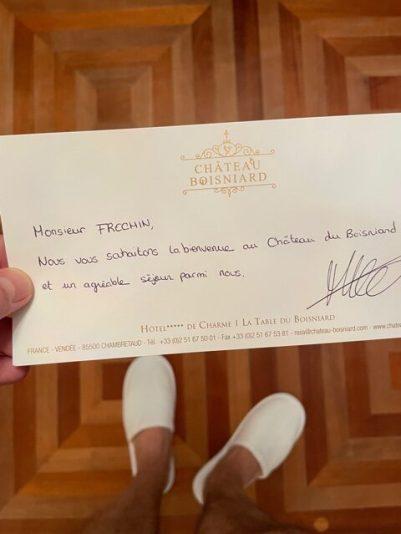 CHÂTEAU
BOISNIARD
Monsieur FROCHIN,
Nous vous souhaitons la bienvenue au Château du Boisniard
et un agréable séjour parmi nous.
HOTEL***** DE CHARME | LA TABLE DU BOISNIARD
FRANCE - VENDÉE - 85500 CHAMBRETAUD - Tél. +33 (0)2 51 67 50 01 - Fax +33 (0)2 51 67 53 81 -